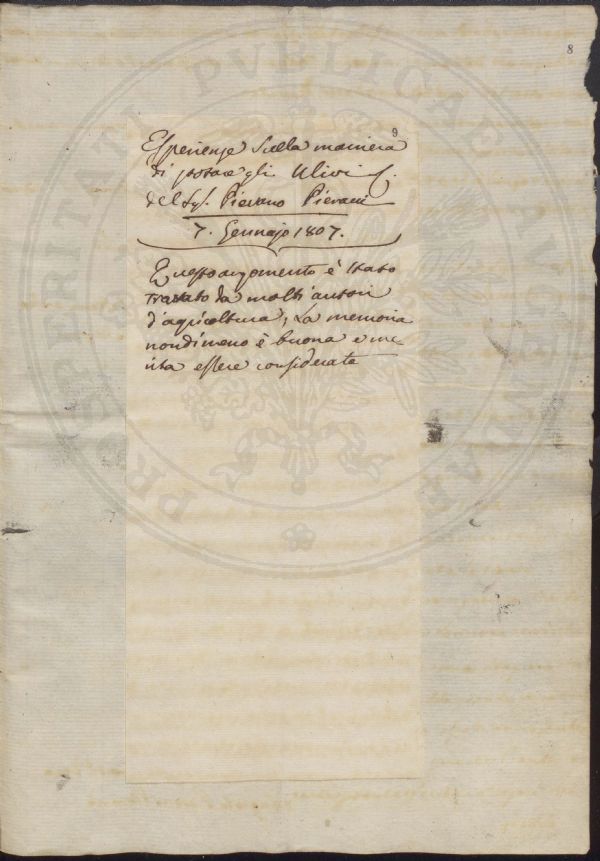 8
9
Esperienze sulla maniera
di potare gli Ulivi
del Sig. Pievano Pievani
7. Gennajo 1807.
Questo argomento è stato
trattato da molti autori
d'agricoltura, La memoria
nondimeno è buona e me-
rita essere considerata
PROSPERITATI PUBLICAE AUGENDAE